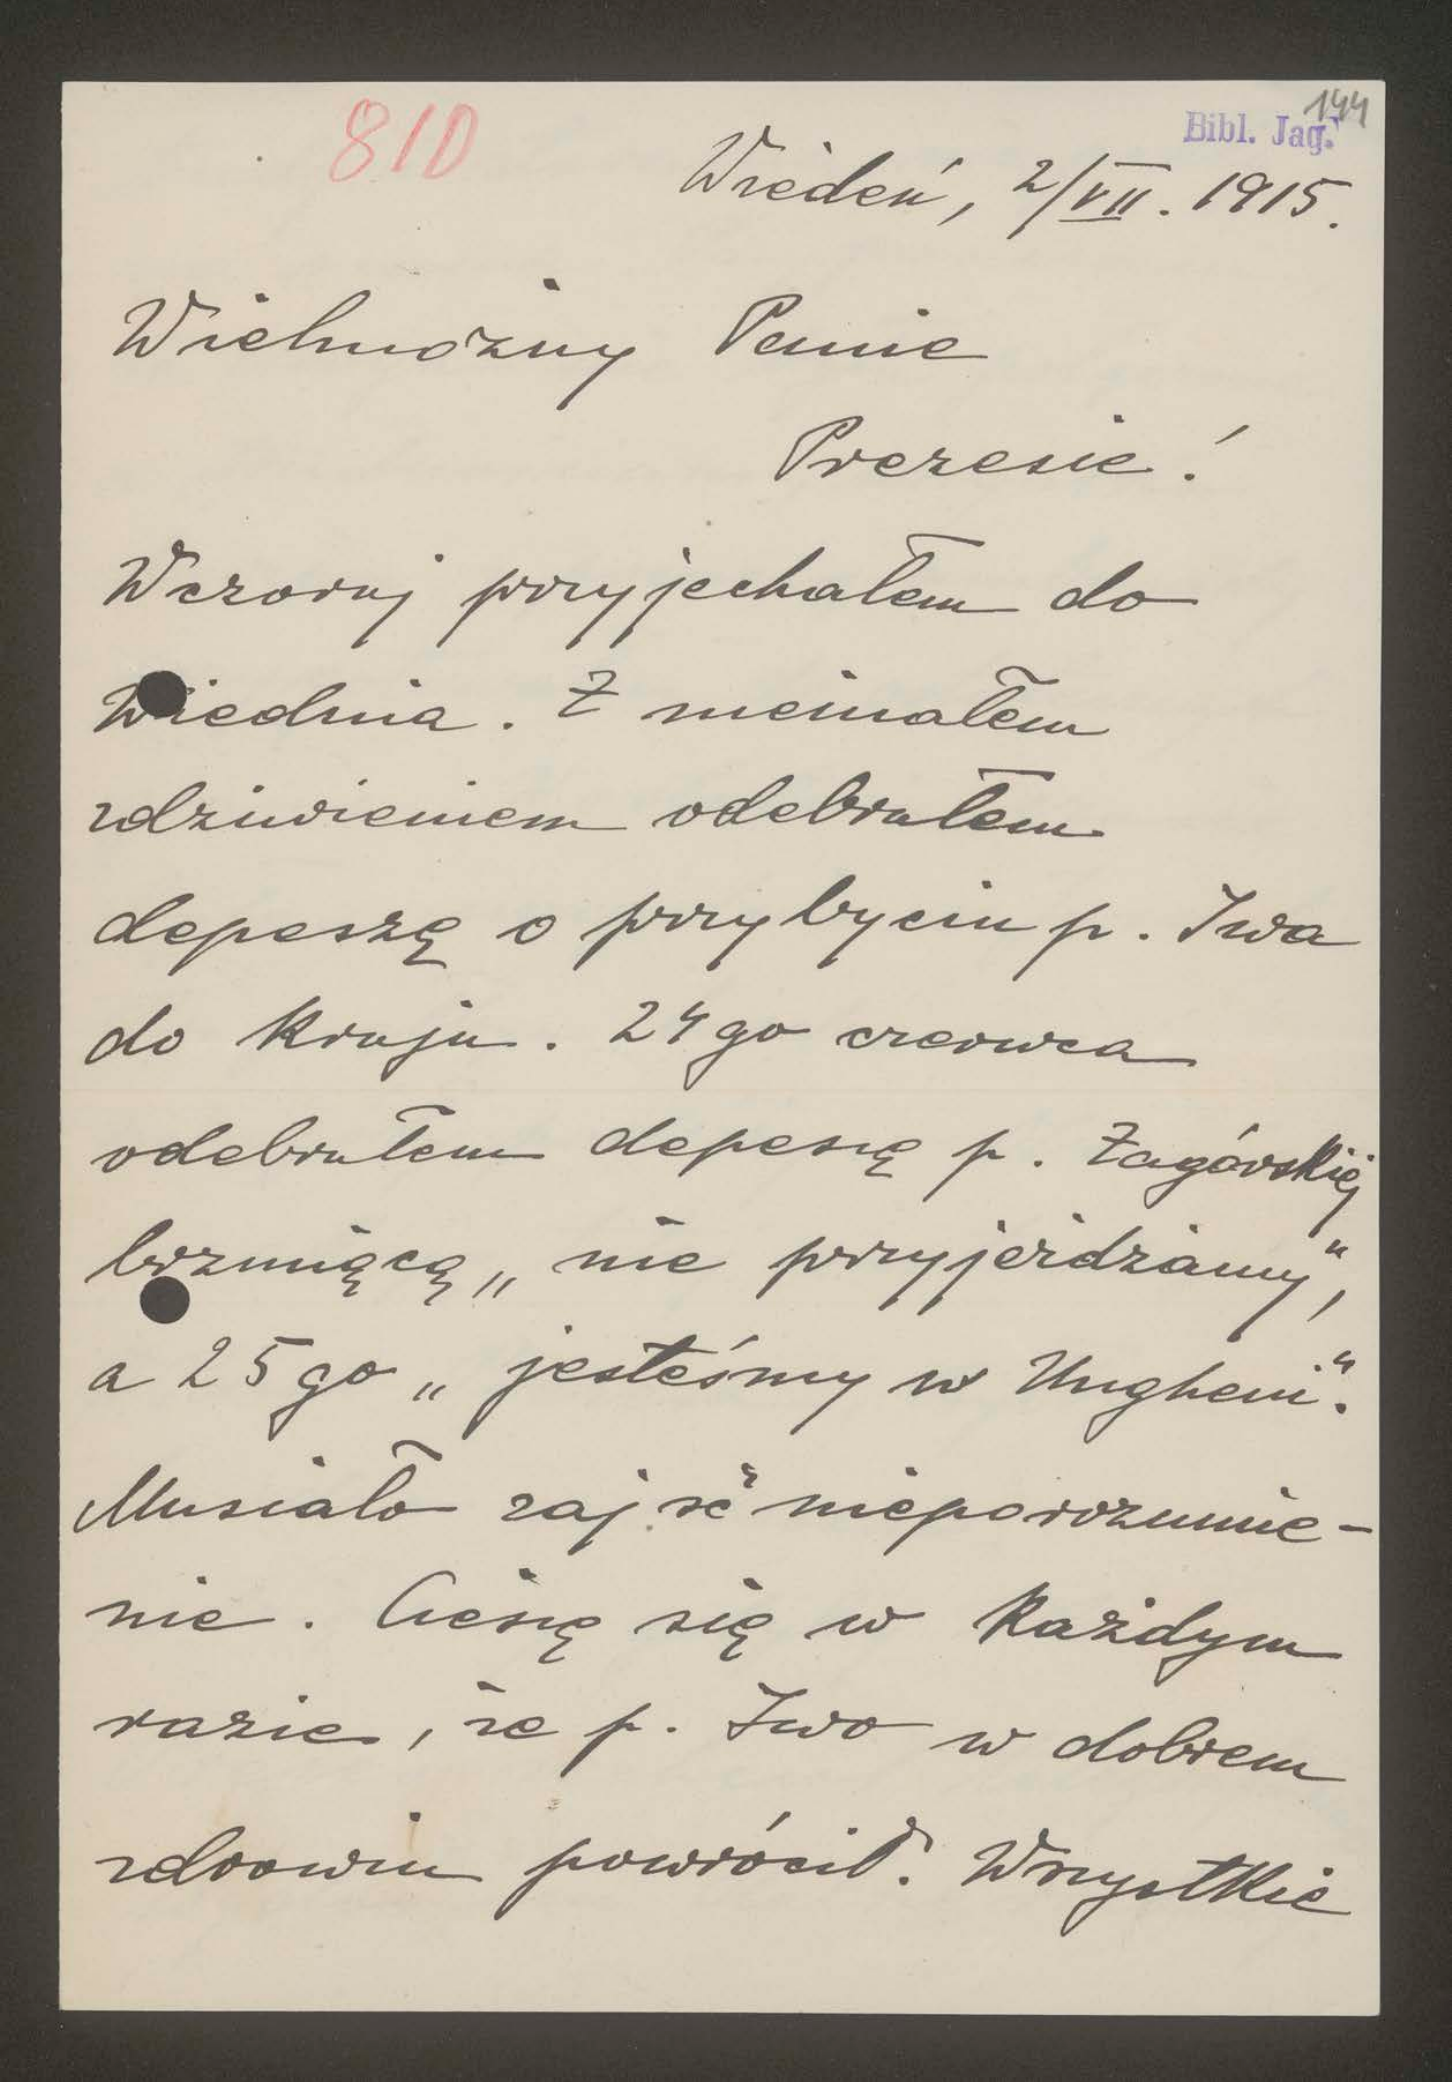 144
81D
Bibl. Jag.
Wiedeń, 2/VII. 1915.
Wielmożny Panie
Prezesie!
Wczoraj przyjechałem do
Wiednia. Z niemałem
zdziwieniem odebrałem
depeszę o przybyciu p. Iwa
do kraju. 24go czerwca
odebrałem depeszę p. Zagórskiej
brzmiącą „nie przyjeżdżamy",
a 25go „jesteśmy w Ungheni".
Musiało zajść nieporozumie-
nie. Cieszę się w każdym
razie, że p. Iwo w dobrem
zdrowiu powrócił. Wszystkie